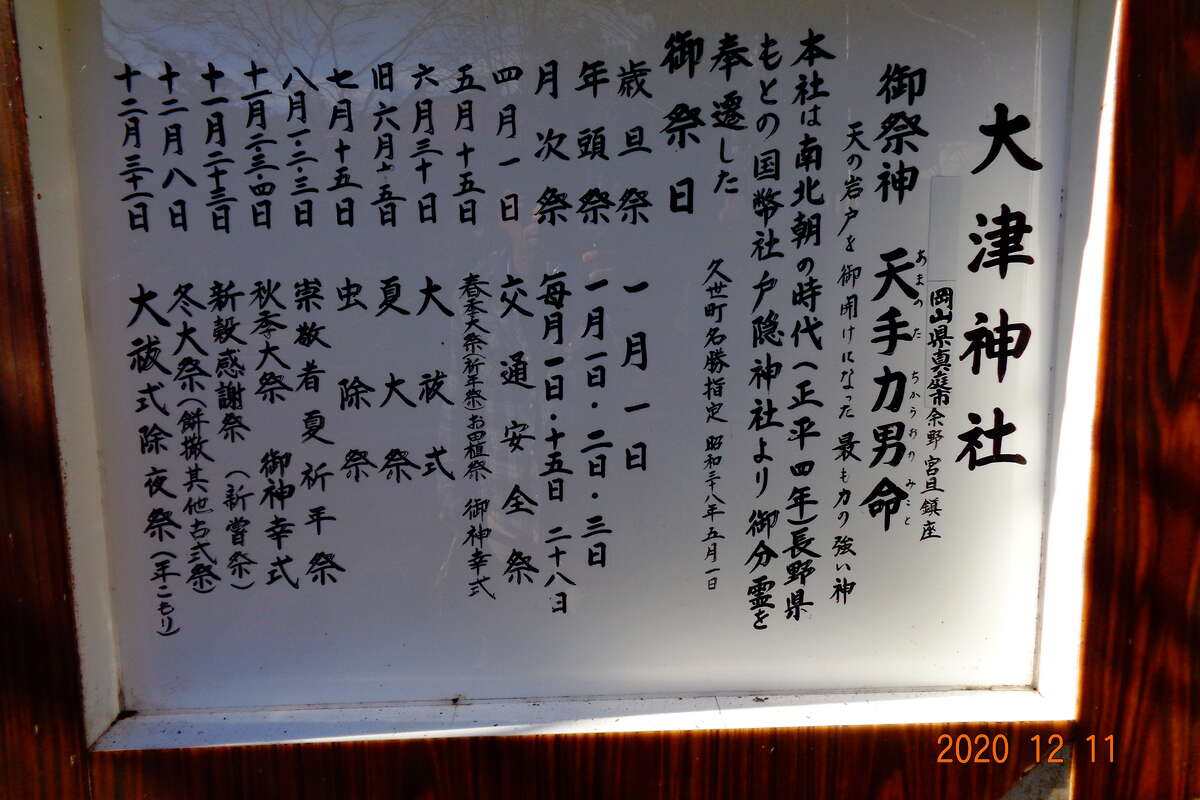 大津神社
岡山県真庭市余野 宮旦鎮座
御祭神 天手力男命
あまのた ぢからおの みこと
天の岩戸を御開けになった最も力の強い神
本社は南北朝の時代(正平四年)長野県
もとの国幣社戸隠神社より御分霊を
奉遷した
久世町名勝指定 昭和三十八年五月一日
御祭日
歳旦祭 一月一日
年頭祭 一月一日・二日・三日
月次祭 毎月一日・十五日 二十八日
四月一日 交通安全祭
五月十五日 春季大祭(祈年祭)お田植祭 御神幸式
六月三十日 大祓式
旧六月十五日 夏大祭
七月十五日 虫除祭
八月一・二・三日 崇敬者夏祈年祭
十一月二・三・四日 秋季大祭 御神幸式
十一月二十三日 新穀感謝祭(新嘗祭)
十二月八日 冬大祭(餅撒其他古式祭)
十二月三十一日 大祓式除夜祭(年こもり)
2020 12 11